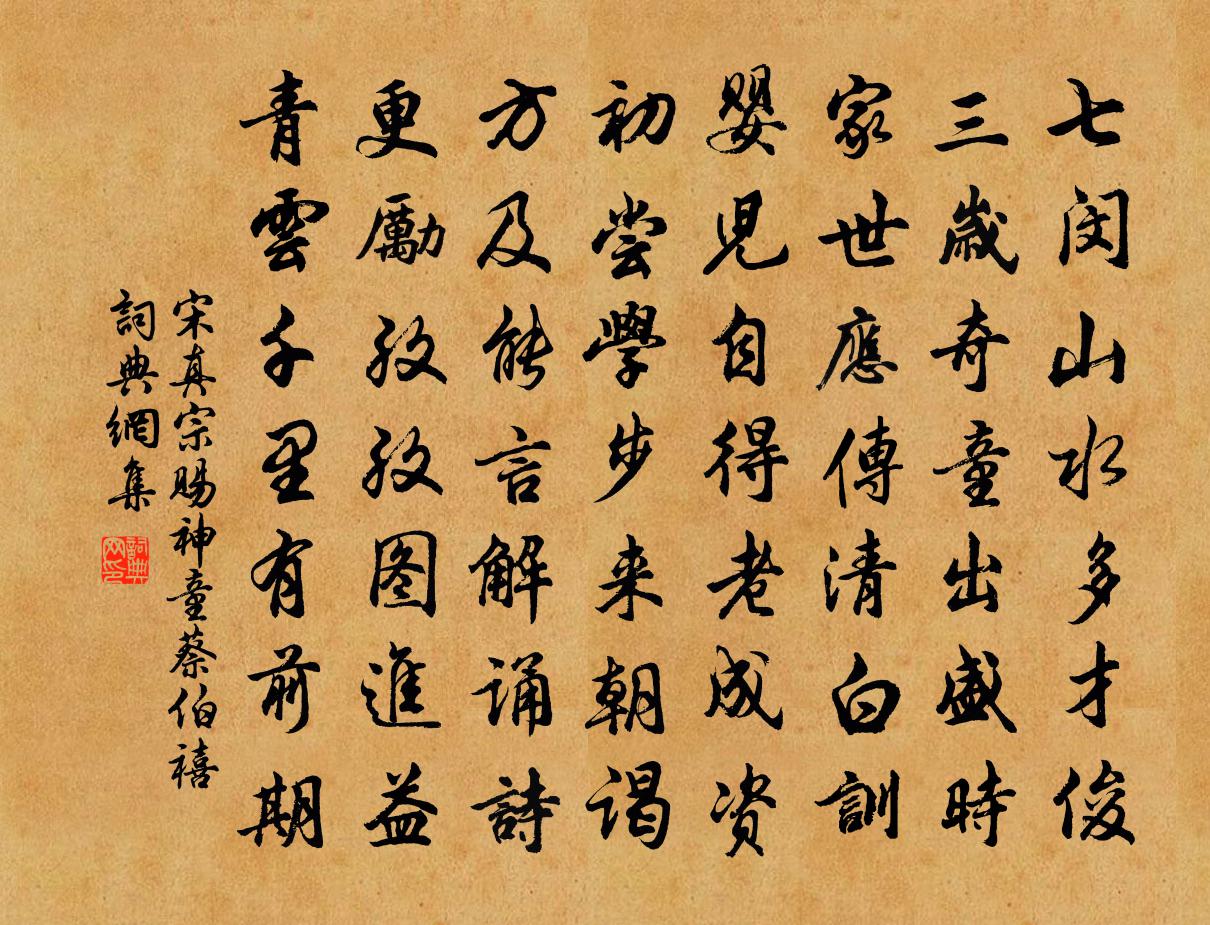 七閔山水多才俊
三歲奇童出盛時
家世應傳清白訓
嬰兒自得老成資
初嘗學步来朝謁
方及能言解誦詩
更勵孜孜图進益
青雲千里有前期
宋真宗賜神童蔡伯禧
詞典網集
詞典网印